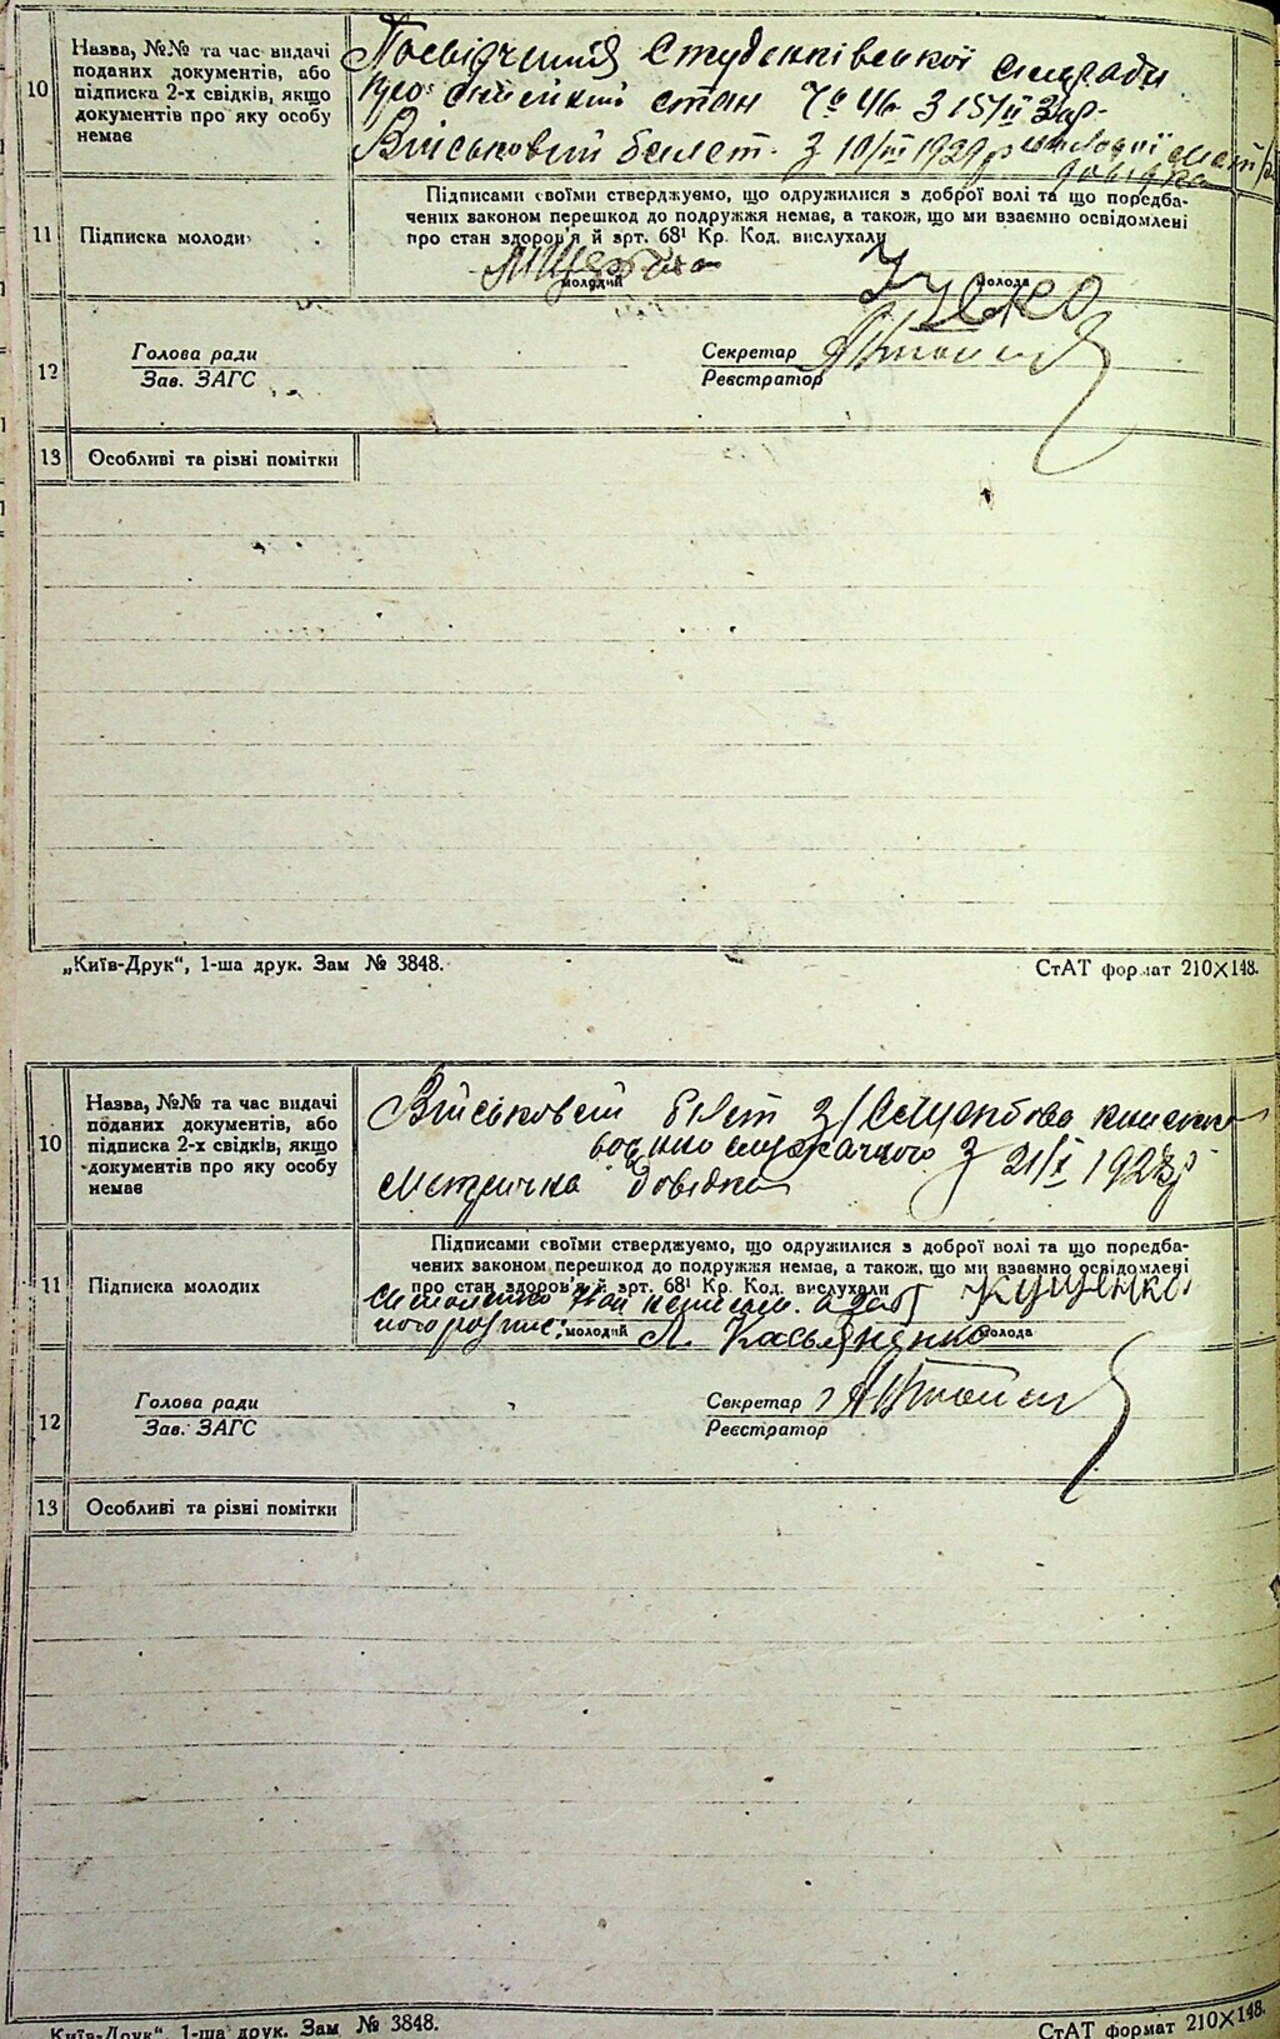 10
Назва, №№ та час видачі
поданих документів, або
підписка 2-х свідків, якщо
документів про яку особу
немає
Посвідчення Студениківської сельради
про стан № 46 З 15/II 30р.
Військовий білет З 10/III 1929р
довідка
11
Підписка молоди
Підписами своїми стверджуємо, що одружилися з доброї волі та що передба-
чених законом перешкод до подружжя немає, а також, що ми взаємно освідомлені
про стан здоров'я й арт. 68¹ Кр. Код. вислухали
молодий
молода
12
Голова ради
Зав. ЗАГС
Секретар
Реєстратор
13
Особливі та різні помітки
„Київ-Друк“, 1-ша друк. Зам № 3848.
СтАТ формат 210×148.
10
Назва, №№ та час видачі
поданих документів, або
підписка 2-х свідків, якщо
документів про яку особу
немає
Військовий білет З
З 21/X 1927р
Метрична довідка
11
Підписка молодих
Підписами своїми стверджуємо, що одружилися з доброї волі та що передба-
чених законом перешкод до подружжя немає, а також, що ми взаємно освідомлені
про стан здоров'я й арт. 68¹ Кр. Код. вислухали
Куценко
молодий
Л. Касьяненко
молода
12
Голова ради
Зав. ЗАГС
Секретар
Реєстратор
13
Особливі та різні помітки
Київ-Друк“, 1-ша друк. Зам № 3848.
СтАТ формат 210×148.